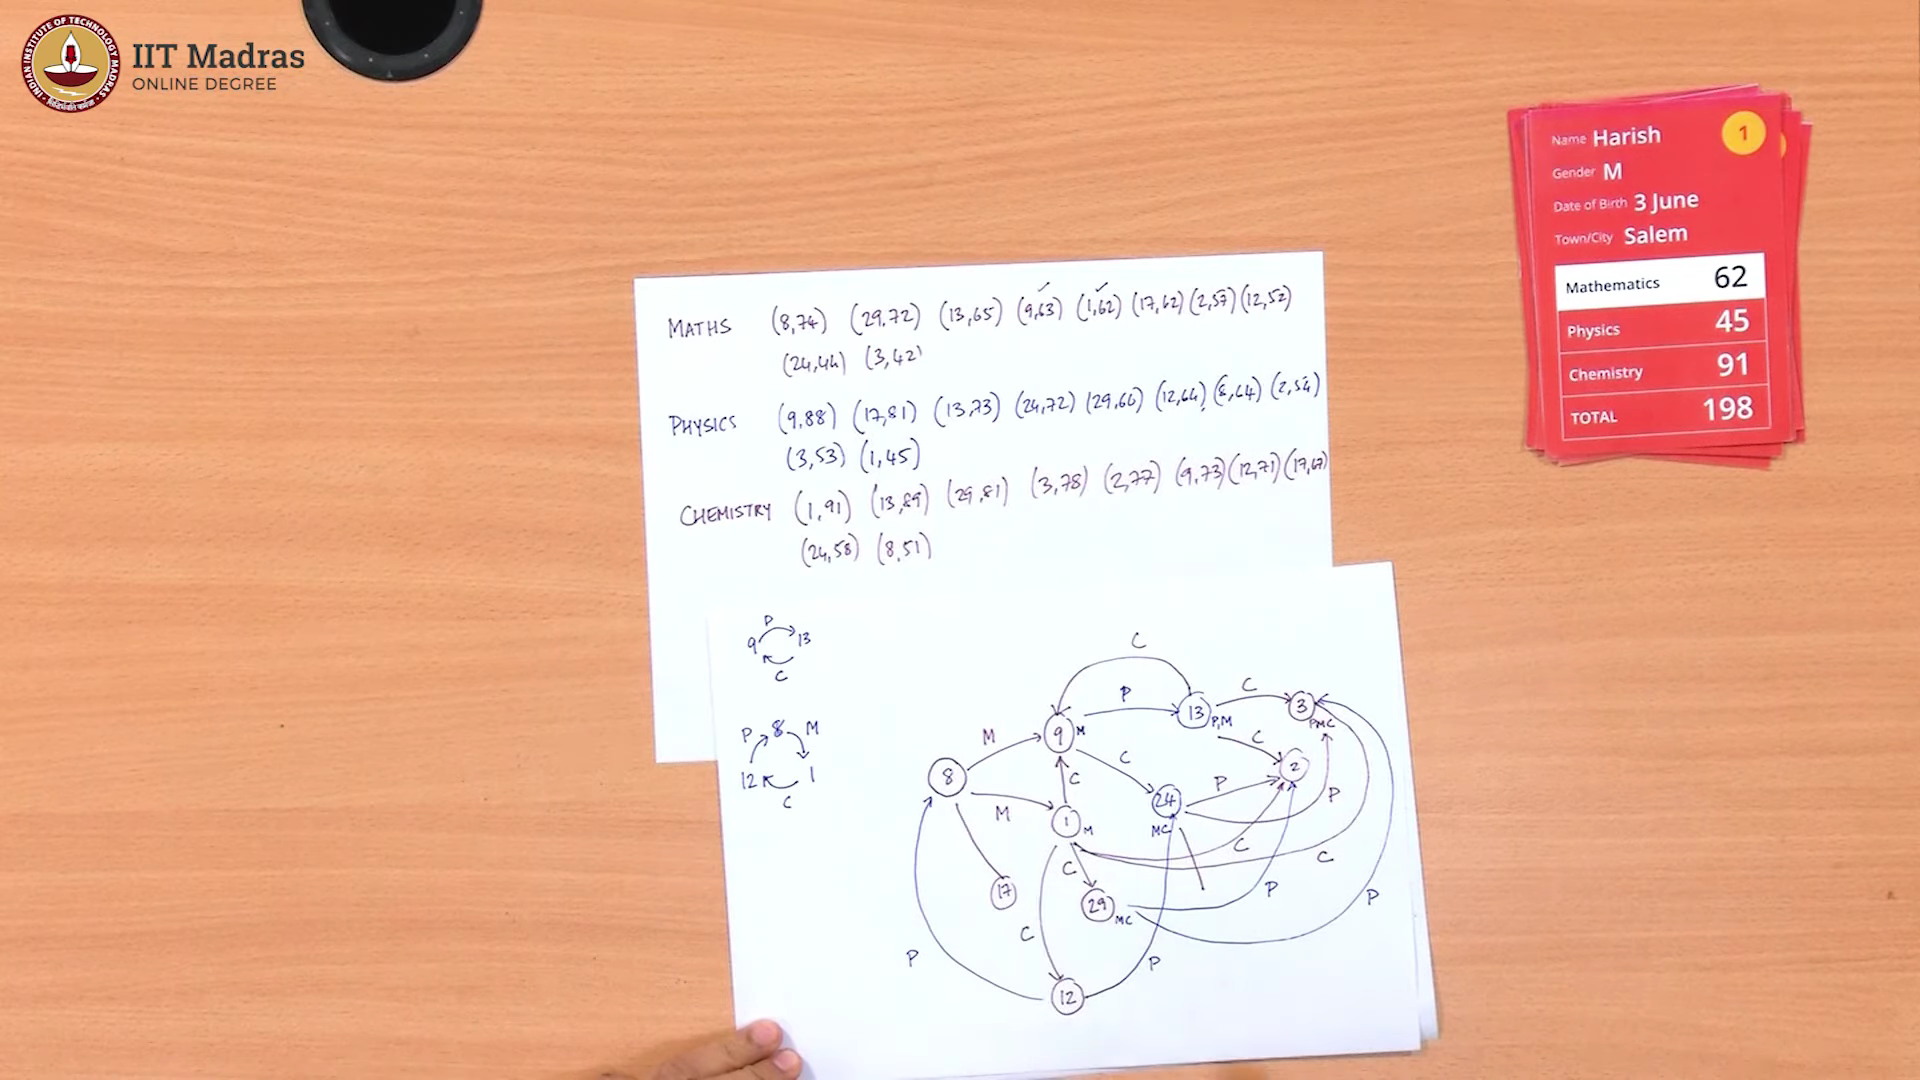 INDIAN INSTITUTE OF TECHNOLOGY MADRAS
IIT Madras
ONLINE DEGREE
Name Harish
1
Gender M
Date of Birth 3 June
Town/City Salem
Mathematics 62
Physics 45
Chemistry 91
TOTAL 198
MATHS (8,74) (29,72) (13,65) (9,63) (1,62) (17,62) (2,57) (12,52)
(24,44) (3,42)
PHYSICS (9,88) (17,81) (13,73) (24,72) (29,66) (12,64) (8,64) (2,54)
(3,53) (1,45)
CHEMISTRY (1,91) (13,89) (29,81) (3,78) (2,77) (9,73) (12,71) (17,67)
(24,58) (8,51)
P
9 13
C
P 8 M
12 1
C
C
P 13 P,M C 3 PMC
M 9 M C 2
8 C C P P
M 1 M 24 MC C C
17 C 29 MC P P
C
P 12 P